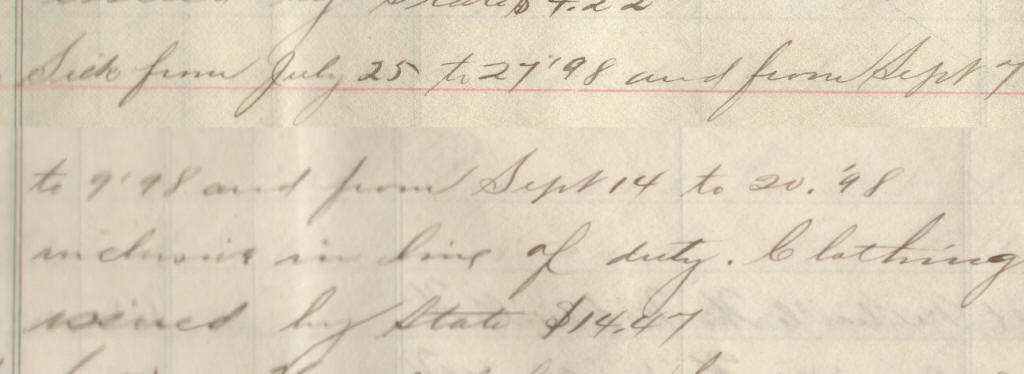 issued by State $4.22
Sick from July 25 to 27 '98 and from Sept 7
to 9 '98 and from Sept 14 to 20. '98
inclusive in line of duty. Clothing
issued by State $14.47